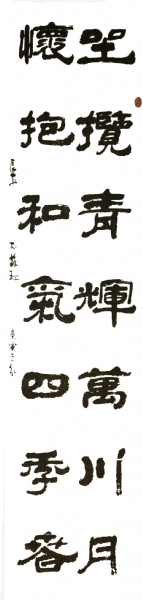 坐攬青輝萬川月
懷抱和氣四季春